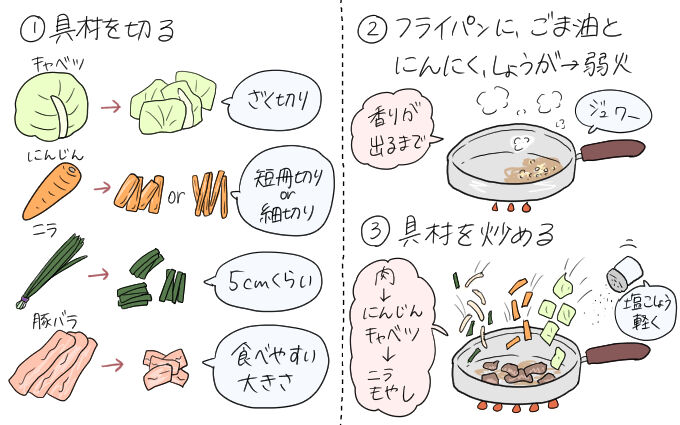 ①具材を切る
キャベツ
ざく切り
にんじん
or
短冊切り
or
細切り
ニラ
5cmくらい
豚バラ
食べやすい
大きさ
②フライパンに、ごま油と
にんにく、しょうが→弱火
香りが
出るまで
ジュワー
③具材を炒める
肉
↓
にんじん
キャベツ
↓
ニラ
もやし
塩こしょう
軽く